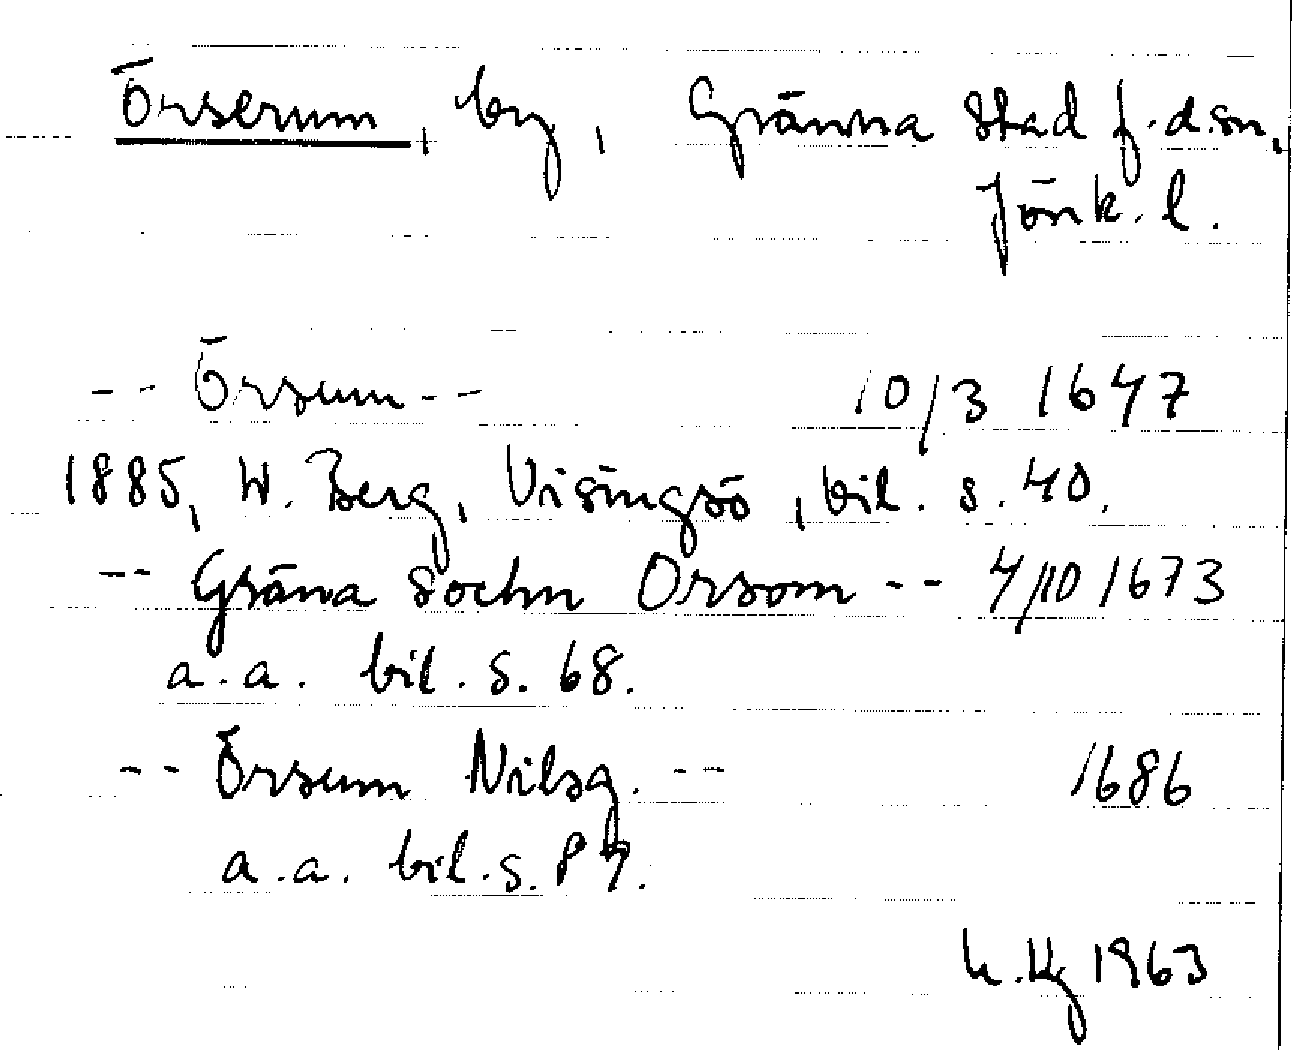 Örserum, by, Gränna stad f.d.sn,
Jönk. l.
-- Örsum -- 10/3 1647
1885, W. Berg, Visingsö, bil. s. 40.
-- Gräna Sochn Orsom -- 4/10 1673
a.a. bil. s. 68.
-- Örsum Nilsg. -- 1686
a.a. bil. s. 87.
1963